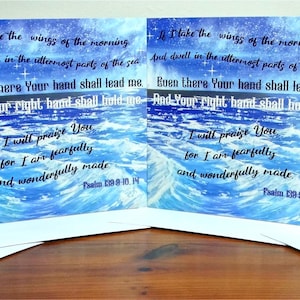 the wings of the morning,
in the uttermost parts of the sea
here Your hand shall lead me,
Your right hand shall hold me.
I will praise You,
for I am fearfully
and wonderfully made.
Psalm 139:9-10, 14
If I take the wings of the morning
And dwell in the uttermost parts of
Even there Your hand shall lead me
And Your right hand shall hold me
I will praise You,
for I am fearfully
and wonderfully made.
Psalm 139:9